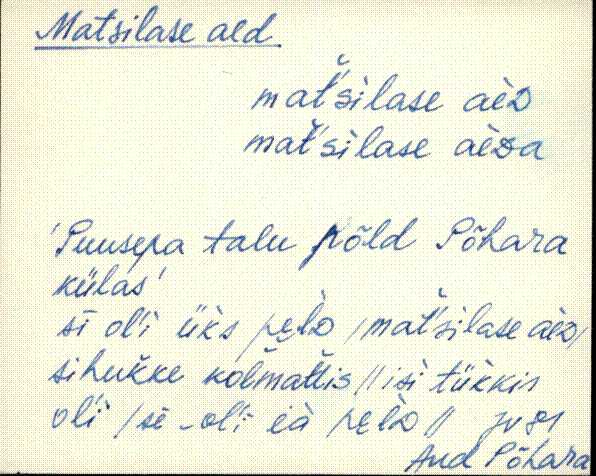 Matsilase aed
mat's̆ilase aèD
mat's̆ilase aèDa
'Puusepa talu põld Põhara
külas'
sī ol'i üks pe̬lD / mat's̆ilase aèD /
sihukke kolmattis // isi tükkis
ol'i / sē ol'i eà pe̬lD //
Aud Põhara